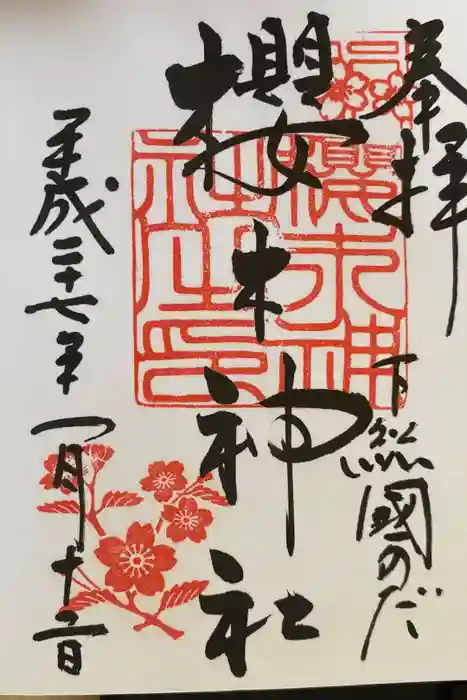 奉拝
下総國のだ
櫻木神社
櫻木神社之印
平成二十七年一月十二日